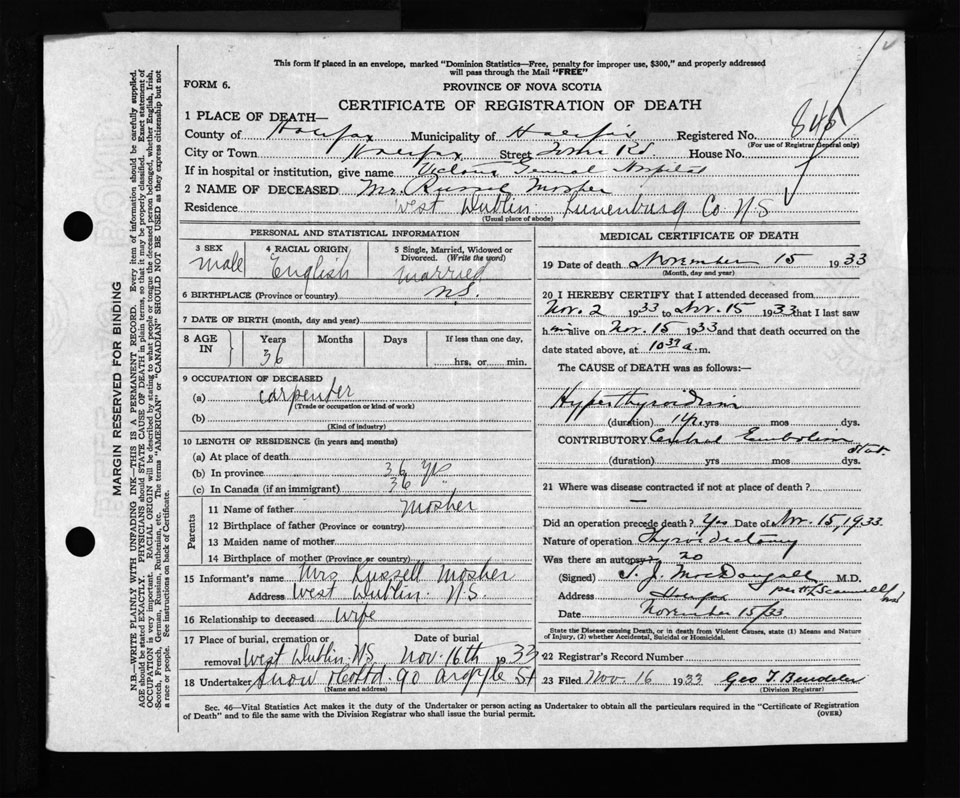 This form if placed in an envelope, marked "Dominion Statistics—Free, penalty for improper use, $300," and properly addressed
will pass through the Mail "FREE"
FORM 6.
PROVINCE OF NOVA SCOTIA
CERTIFICATE OF REGISTRATION OF DEATH
MARGIN RESERVED FOR BINDING
N.B.—WRITE PLAINLY WITH UNFADING INK—THIS IS A PERMANENT RECORD. Every item of information should be carefully supplied.
AGE should be stated EXACTLY. PHYSICIANS should STATE CAUSE OF DEATH in plain terms, so that it may be properly classified. Exact statement of
OCCUPATION is very important. RACIAL ORIGIN will be described by stating to what people or tongue the deceased person belonged, whether English, Irish,
Scotch, French, German, Russian, Ruthenian, etc. The terms "AMERICAN" or "CANADIAN" SHOULD NOT BE USED as they express citizenship but not
a race or people. See instructions on back of Certificate.
1 PLACE OF DEATH—
County of Halifax Municipality of Halifax Registered No. 845
(For use of Registrar General only)
City or Town Halifax Street Rd. House No.
If in hospital or institution, give name Victoria General Hospital
2 NAME OF DECEASED Mr. Russel Mosher
Residence West Dublin Lunenburg Co N.S
(Usual place of abode)
PERSONAL AND STATISTICAL INFORMATION
3 SEX Male
4 RACIAL ORIGIN English
5 Single, Married, Widowed or Divorced. (Write the word) Married
6 BIRTHPLACE (Province or country) N.S.
7 DATE OF BIRTH (month, day and year)
8 AGE IN Years 36 Months Days If less than one day, hrs. or min.
9 OCCUPATION OF DECEASED
(a) carpenter
(Trade or occupation or kind of work)
(b)
(Kind of industry)
10 LENGTH OF RESIDENCE (in years and months)
(a) At place of death
(b) In province 36 Yrs
(c) In Canada (if an immigrant) 36
Parents
11 Name of father Mosher
12 Birthplace of father (Province or country)
13 Maiden name of mother
14 Birthplace of mother (Province or country)
15 Informant's name Mrs Russell Mosher
Address West Dublin. N.S.
16 Relationship to deceased wife
17 Place of burial, cremation or removal West Dublin N.S Date of burial Nov. 16th 1933
18 Undertaker Snow & Co Ltd. 90 Argyle St
(Name and address)
MEDICAL CERTIFICATE OF DEATH
19 Date of death November 15 1933
(Month, day and year)
20 I HEREBY CERTIFY that I attended deceased from
Nov. 2 1933 to Nov. 15 1933 that I last saw
him alive on Nov. 15 1933 and that death occurred on the
date stated above, at 10 a.m.
The CAUSE of DEATH was as follows:—
Hyperthyroidism
(duration) 1 yrs. mos. dys.
CONTRIBUTORY Embolism
(duration) yrs mos. dys.
21 Where was disease contracted if not at place of death?
Did an operation precede death? Yes Date of Nov. 15, 1933
Nature of operation Thyroidectomy
Was there an autopsy no
(Signed) J. J. MacDougall M.D.
per
Address Halifax
Date November 15/33
State the Disease causing Death, or in death from Violent Causes, state (1) Means and Nature
of Injury, (2) whether Accidental, Suicidal or Homicidal.
22 Registrar's Record Number
23 Filed Nov 16 1933 Geo T
(Division Registrar)
Sec. 46—Vital Statistics Act makes it the duty of the Undertaker or person acting as Undertaker to obtain all the particulars required in the "Certificate of Registration
of Death" and to file the same with the Division Registrar who shall issue the burial permit.
(OVER)